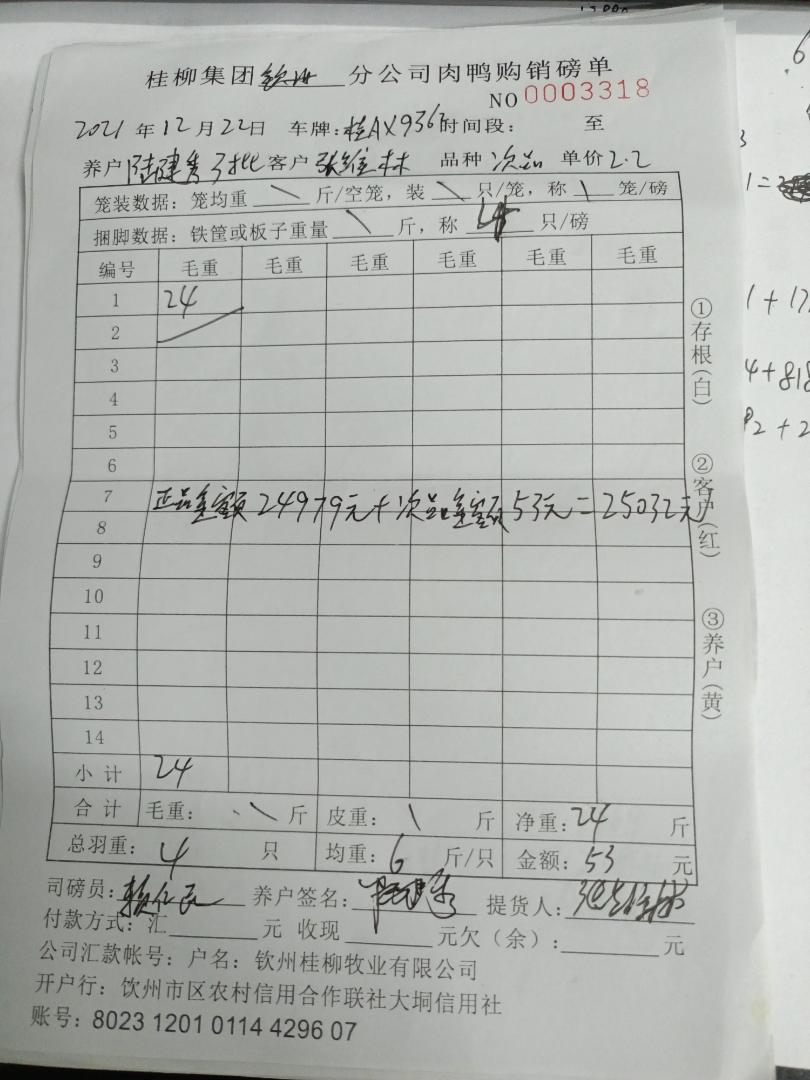 桂柳集团钦州分公司肉鸭购销磅单
NO 0003318
2021年12月22日 车牌：桂AX9363 时间段： 至
养户 陆建秀 子批 客户 张维林 品种 次品 单价 2.2
笼装数据：笼均重 \ 斤/空笼，装 \ 只/笼，称 \ 笼/磅
捆脚数据：铁筐或板子重量 \ 斤，称 4 只/磅
编号 毛重 毛重 毛重 毛重 毛重 毛重
1 24
2
3
4
5
6
7 正品金额 24979元+次品金额 53元=25032元
8
9
10
11
12
13
14
小计 24
合计 毛重： \ 斤 皮重： \ 斤 净重：24 斤
总羽重： 4 只 均重：6 斤/只 金额：53 元
司磅员： 养户签名： 提货人：
付款方式：汇 元 收现 元欠（余）： 元
公司汇款帐号：户名：钦州桂柳牧业有限公司
开户行：饮州市区农村信用合作联社大垌信用社
账号：8023 1201 0114 4296 07
①存根（白）
②客户（红）
③养户（黄）